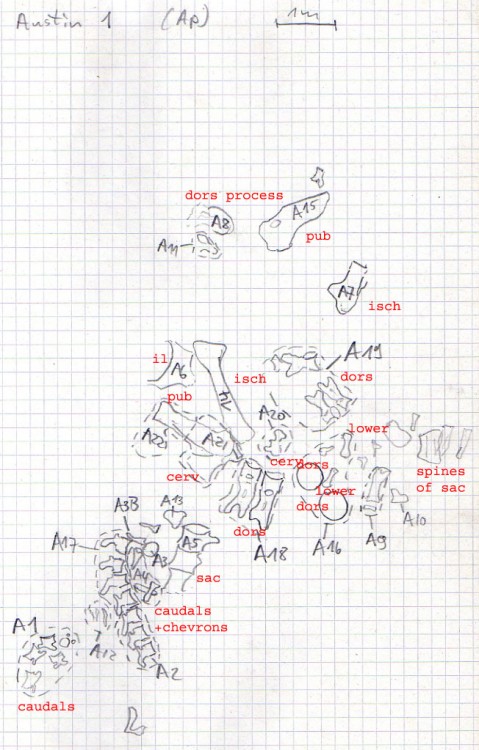 Austin 1 (Ap) 1m
dors process
A8
A15
A11
pub
A7
isch
il
A6
A19
isch
dors
pub
A4
A20
lower
A22
A21
cerv
dors
spines
of sac
cerv
lower
dors
A10
dors
A3B
A13
A18
A16
A9
A17
A5
A3
A4
sac
caudals
+chevrons
A1
A12
A2
caudals